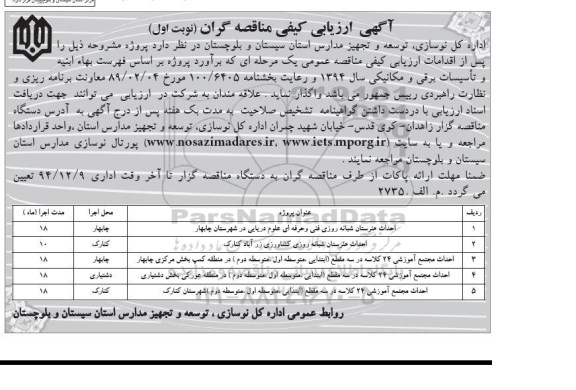 آگهی ارزیابی کیفی مناقصه گران (نوبت اول)
اداره کل نوسازی، توسعه و تجهیز مدارس استان سیستان و بلوچستان در نظر دارد پروژه مشروحه ذیل را
پس از اقدامات ارزیابی کیفی مناقصه عمومی یک مرحله ای که برآورد پروژه بر اساس فهرست بهاء ابنیه
و تأسیسات برقی و مکانیکی سال ۱۳۹۴ و رعایت بخشنامه ۱۰۰/۶۴۰۵ مورخ ۸۹/۰۲/۰۴ معاونت برنامه ریزی و
نظارت راهبردی رییس جمهور می باشد واگذار نماید . علاقه مندان به شرکت در ارزیابی می توانند جهت دریافت
اسناد ارزیابی با دردست داشتن گواهینامه تشخیص صلاحیت به مدت یک هفته پس از درج آگهی به آدرس دستگاه
مناقصه گزار زاهدان- کوی قدس- خیابان شهید چمران اداره کل نوسازی، توسعه و تجهیز مدارس استان ،واحد قراردادها
مراجعه و یا به سایت (www.nosazimadares.ir, www.iets.mporg.ir) پورتال نوسازی مدارس استان
سیستان و بلوچستان مراجعه نمایند .
ضمنا مهلت ارائه پاکات از طرف مناقصه گران به دستگاه مناقصه گزار تا آخر وقت اداری ۹۴/۱۲/۹ تعیین
می گردد .م. الف .۲۷۳۵
ردیف عنوان پروژه محل اجرا مدت اجرا (ماه)
۱ احداث هنرستان شبانه روزی فنی وحرفه ای علوم دریایی در شهرستان چابهار چابهار ۱۸
۲ احداث هنرستان شبانه روزی کشاورزی زر آباد کنارک کنارک ۱۰
۳ احداث مجتمع آموزشی ۲۴ کلاسه در سه مقطع (ابتدایی ،متوسطه اول ،متوسطه دوم ) در منطقه کمپ بخش مرکزی چابهار چابهار ۱۸
۴ احداث مجتمع آموزشی ۲۴ کلاسه در سه مقطع (ابتدایی ،متوسطه اول ،متوسطه دوم) در منطقه عورکی بخش دشتیاری دشتیاری ۱۸
۵ احداث مجتمع آموزشی ۲۴ کلاسه در سه مقطع (ابتدایی ،متوسطه اول ،متوسطه دوم )شهرستان کنارک کنارک ۱۸
ParsNamadData
روابط عمومی اداره کل نوسازی ، توسعه و تجهیز مدارس استان سیستان و بلوچستان